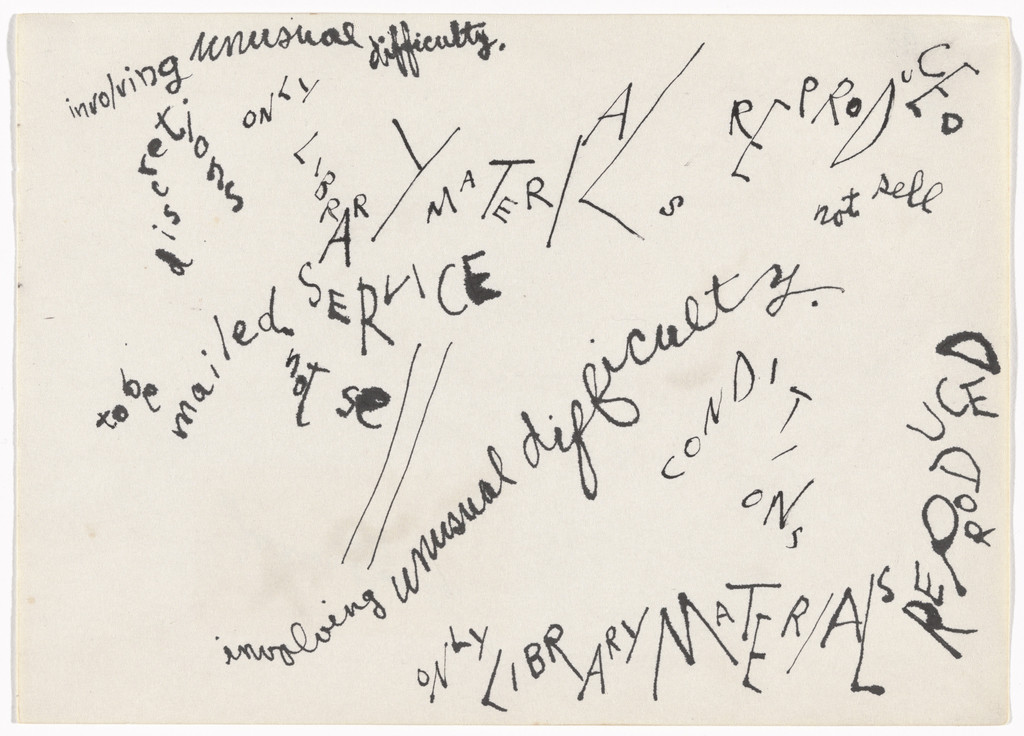 involving unusual difficulty.
discretions
ONLY
LIBRARY MATERIALS
REPRODUCED
not sell
SERVICE
to be mailed.
not se
involving unusual difficulty.
CONDITIONS
REPRODUCED
ONLY LIBRARY MATERIALS